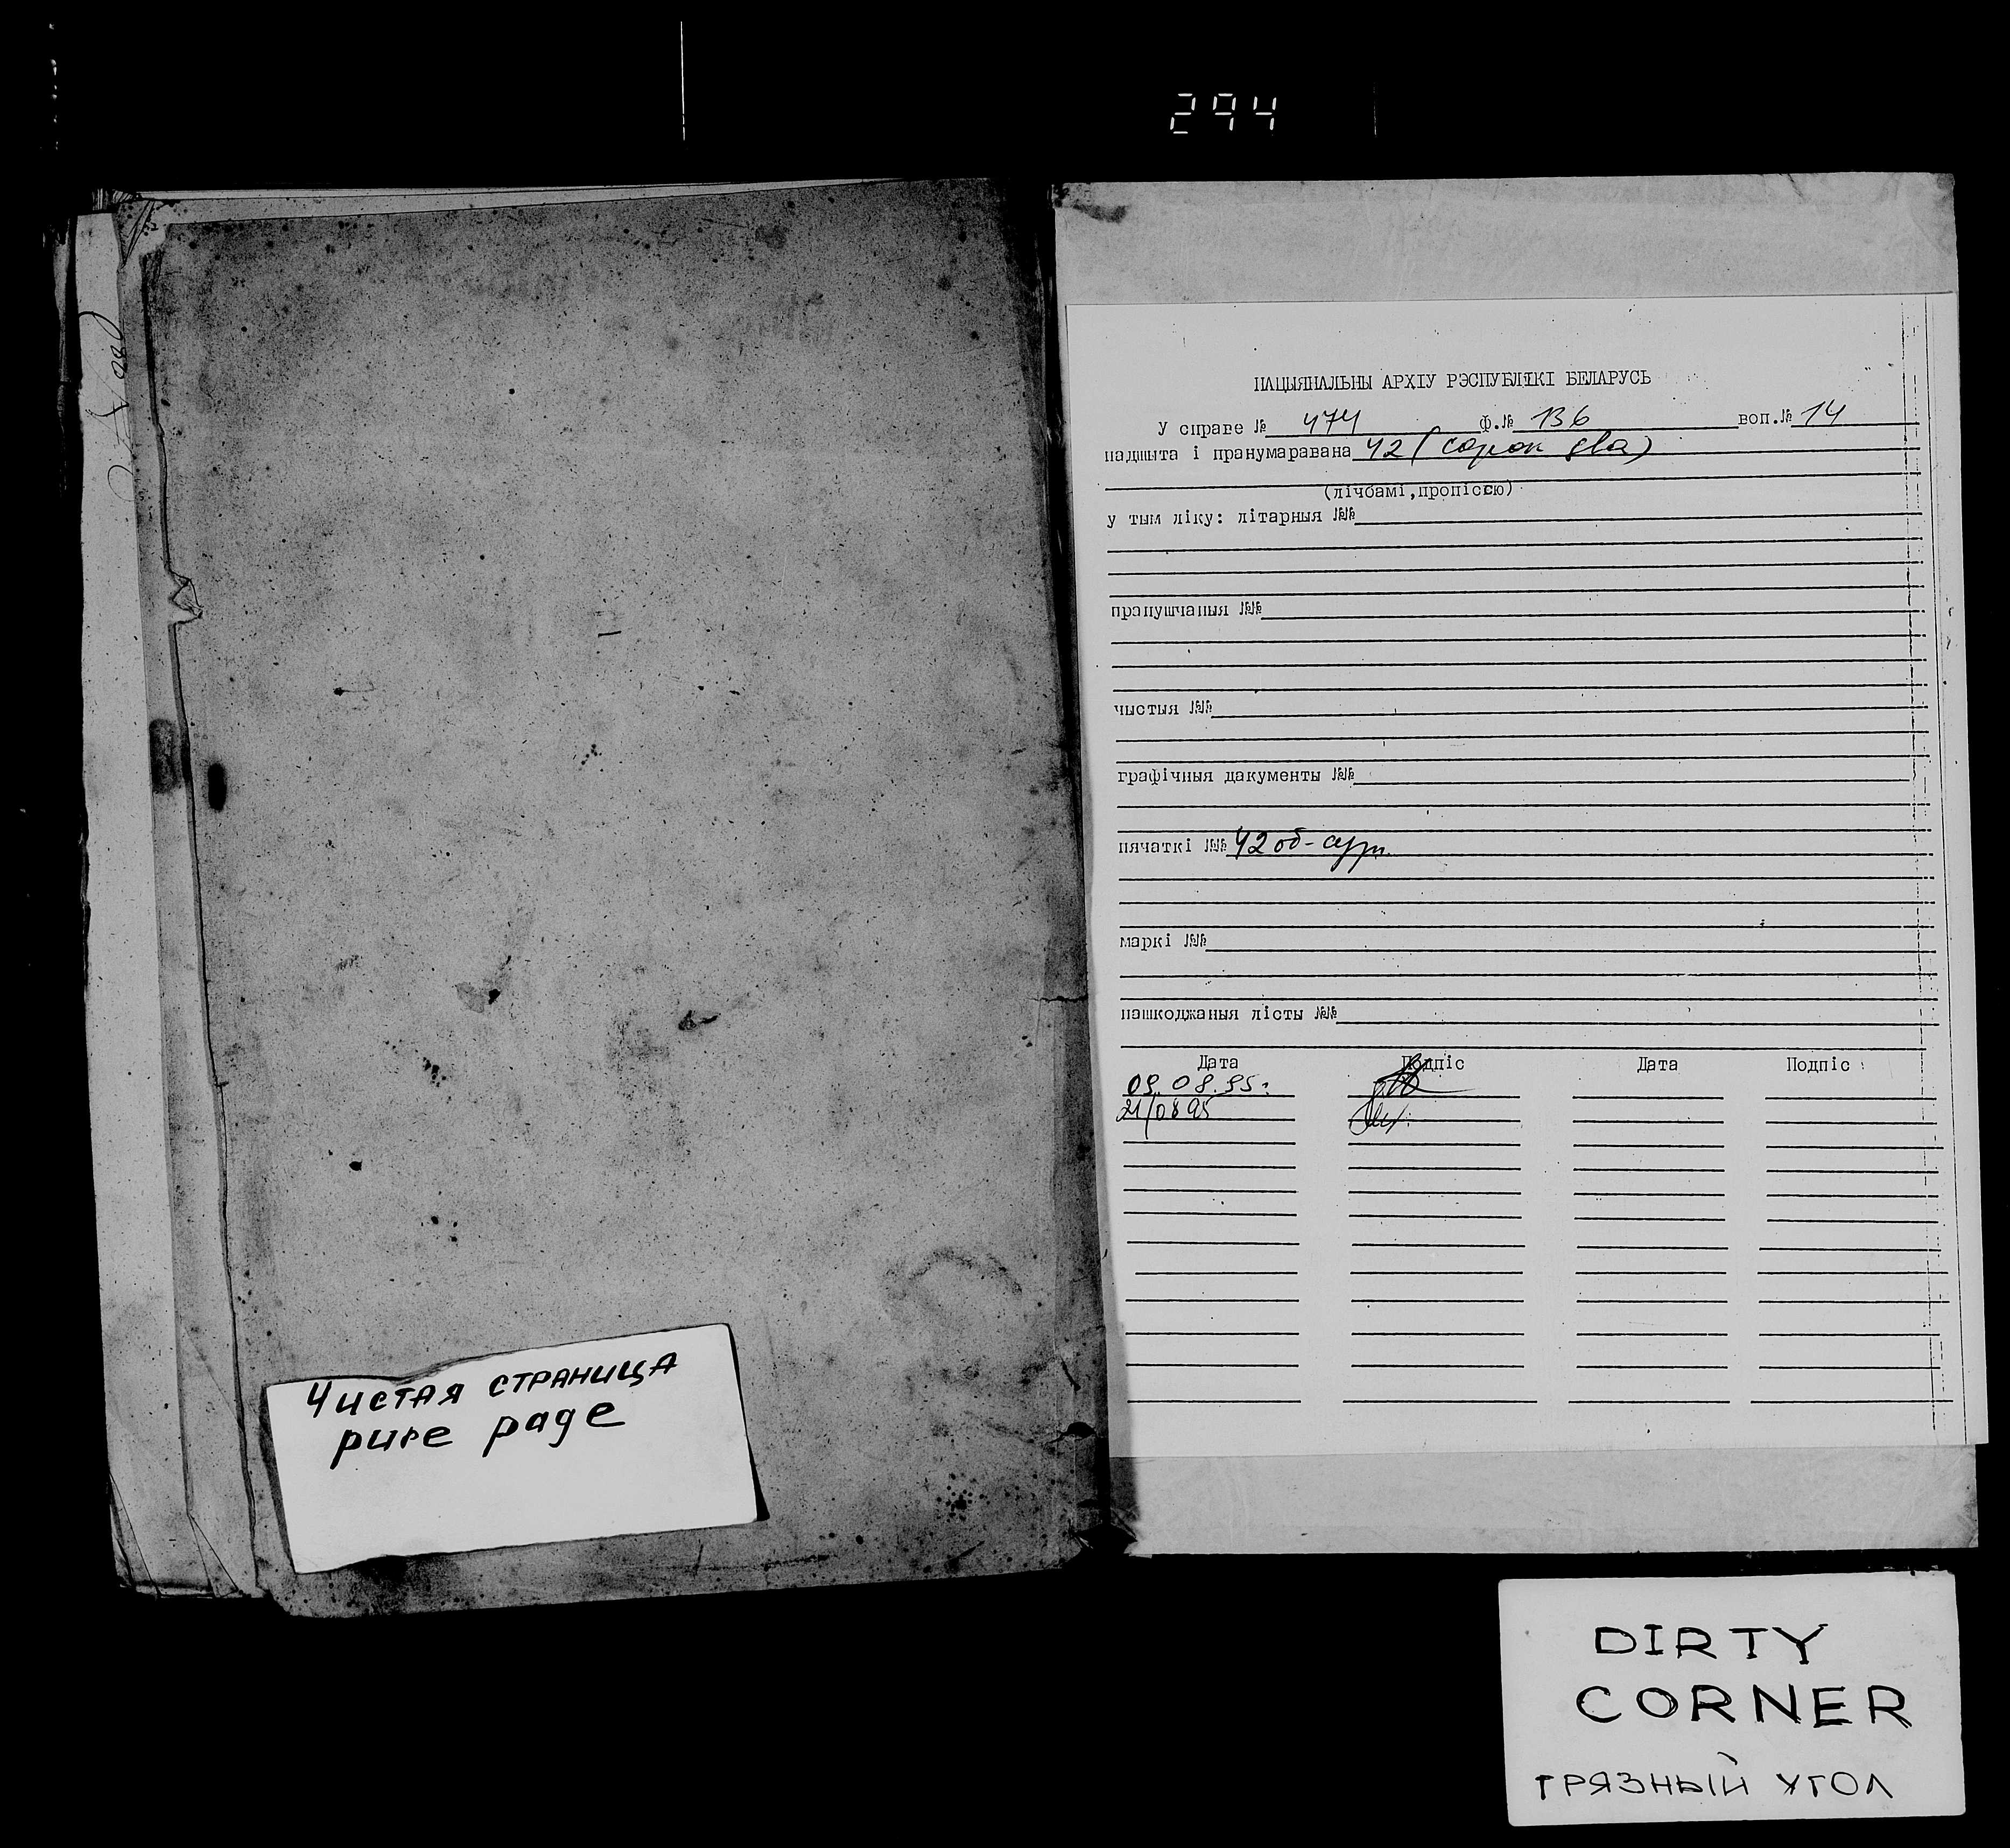 294
НАЦЫЯНАЛЬНЫ АРХІУ РЭСПУБЛІКІ БЕЛАРУСЬ
У справе № 474 ф.№ 136 воп.№ 14
падшыта і пранумаравана 42 (сорок два)
(лічбамі,пропіссю)
у тым ліку: літарныя №№
прапушчаныя №№
чыстыя №№
графічныя дакументы №№
пячаткі №№ 42 об-сург.
маркі №№
пашкоджаныя лісты №№
Дата Подпіс Дата Подпіс
09.08.95г.
21/08 95
Чистая страница
pure page
DIRTY
CORNER
грязный угол